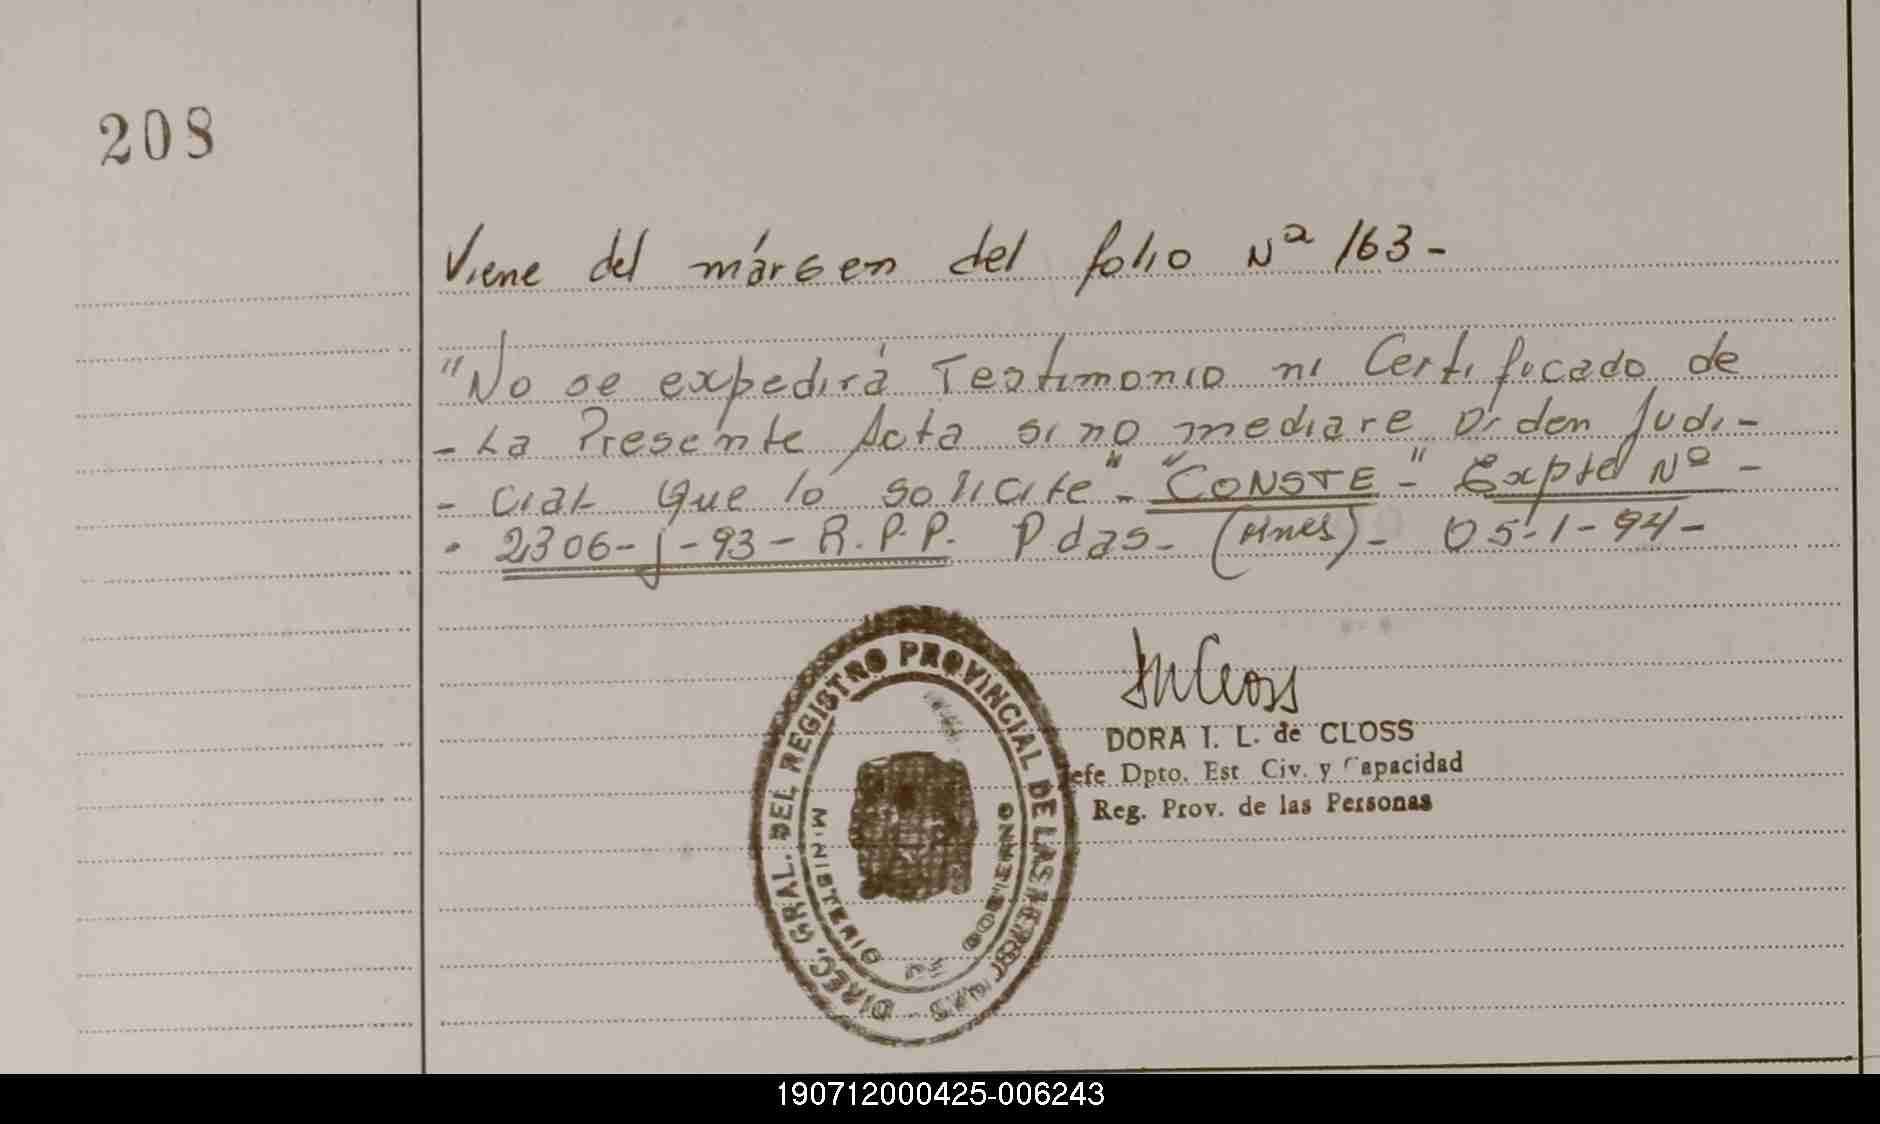 208
Viene del márgen del folio Nª 163-
"No se expedirá Testimonio ni Certificado de
- La Presente Acta si no mediare Orden Judi-
- cial que lo solicite"- "CONSTE"- Expte Nº -
- 2306-J-93- R.P.P. Pdas- (Mnes)- 05-1-94-
DIREC. GRAL. DEL REGISTRO PROVINCIAL DE LAS PERSONAS
MINISTERIO DE GOBIERNO
DORA I. L. de CLOSS
Jefe Dpto. Est Civ. y Capacidad
Reg. Prov. de las Personas
190712000425-006243